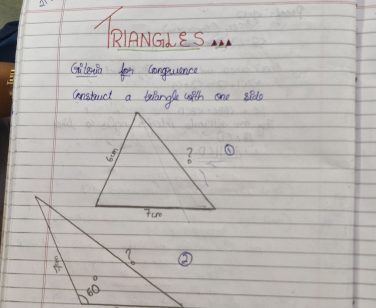 TRIANGLES...
Criteria for Congruence
Construct a triangle with one side
6cm
?
①
7cm
?
②
60°